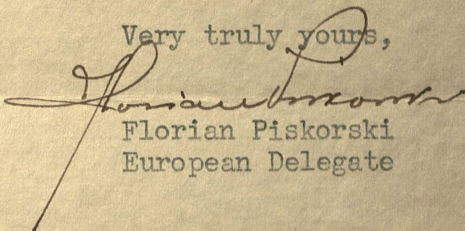 Very truly yours,
Florian Piskorski
Florian Piskorski
European Delegate